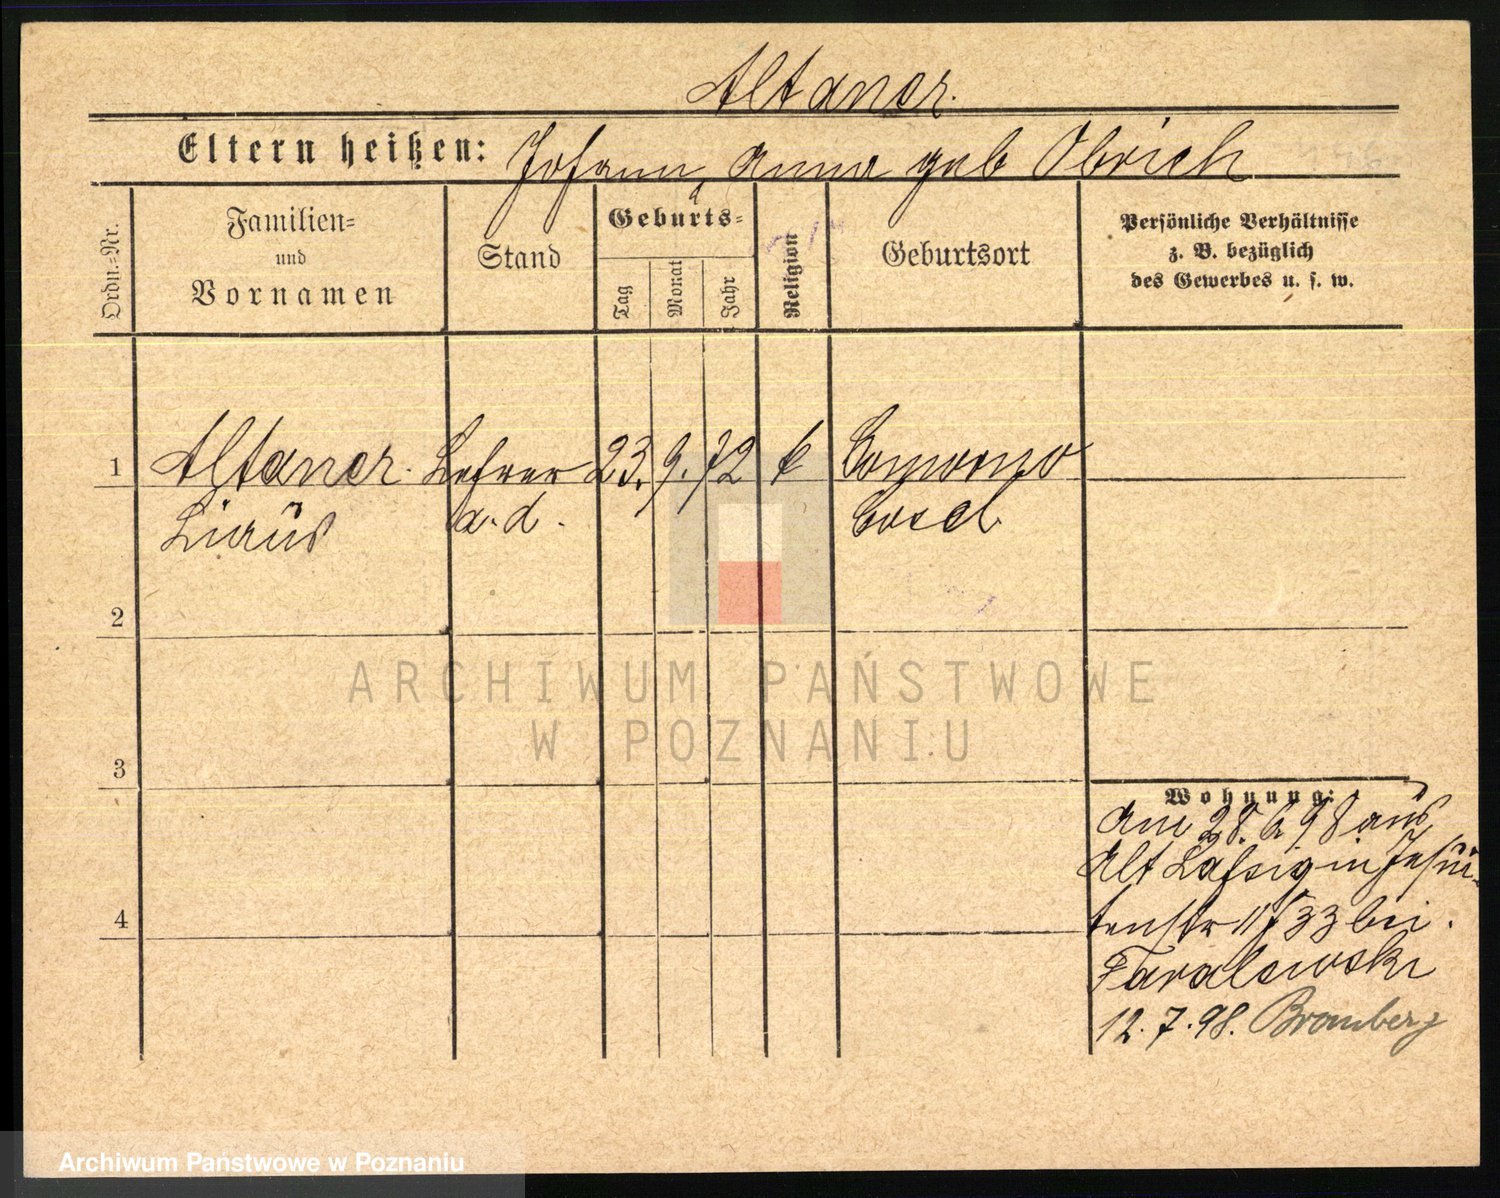 Altaner.
Eltern heißen: Johann, Anna geb Obrich
Ordn.=Nr.
Familien=
und
Vornamen
Stand
Geburts=
Tag
Monat
Jahr
Religion
Geburtsort
Persönliche Verhältnisse
z. B. bezüglich
des Gewerbes u. s. w.
1 Altaner. Lehrer 23. 9. 72 k
a. d. Cosel
2
3
4
Wohnung:
Am 28. 6 98 aus
Alt in Jesui-
tenstr 11 bei
12. 7. 98. Bromberg
ARCHIWUM PAŃSTWOWE
W POZNANIU
Archiwum Państwowe w Poznaniu